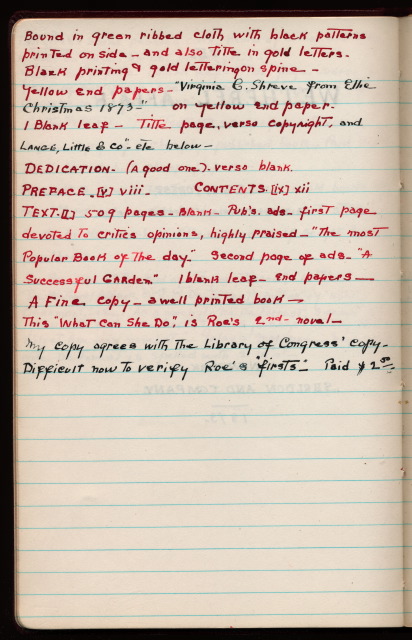 Bound in green ribbed cloth with black patterns
printed on side - and also Title in gold letters.
Black printing & gold lettering on spine -
Yellow end papers - "Virginia C. Shreve from Effie
Christmas 1873 -" on yellow end paper.
1 Blank leaf - Title page, verso copyright, and
LANGE, Little & Co" - etc below -
DEDICATION. (A good one). verso blank.
PREFACE. [v] viii. CONTENTS. [ix] xii
TEXT. [1] 509 pages - Blank - Pub's. ads. first page
devoted To critics opinions, highly praised - "The most
Popular Book of The day." Second page of ads. "A
Successful GARDEN." 1 blank leaf - End papers -
A Fine copy - a well printed book -
This "What Can She Do", is Roe's 2nd - novel -
My copy agrees with The Library of Congress' copy.
Difficult now To verify Roe's "firsts". Paid $2.50.